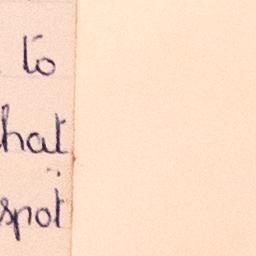 to
hat
spot